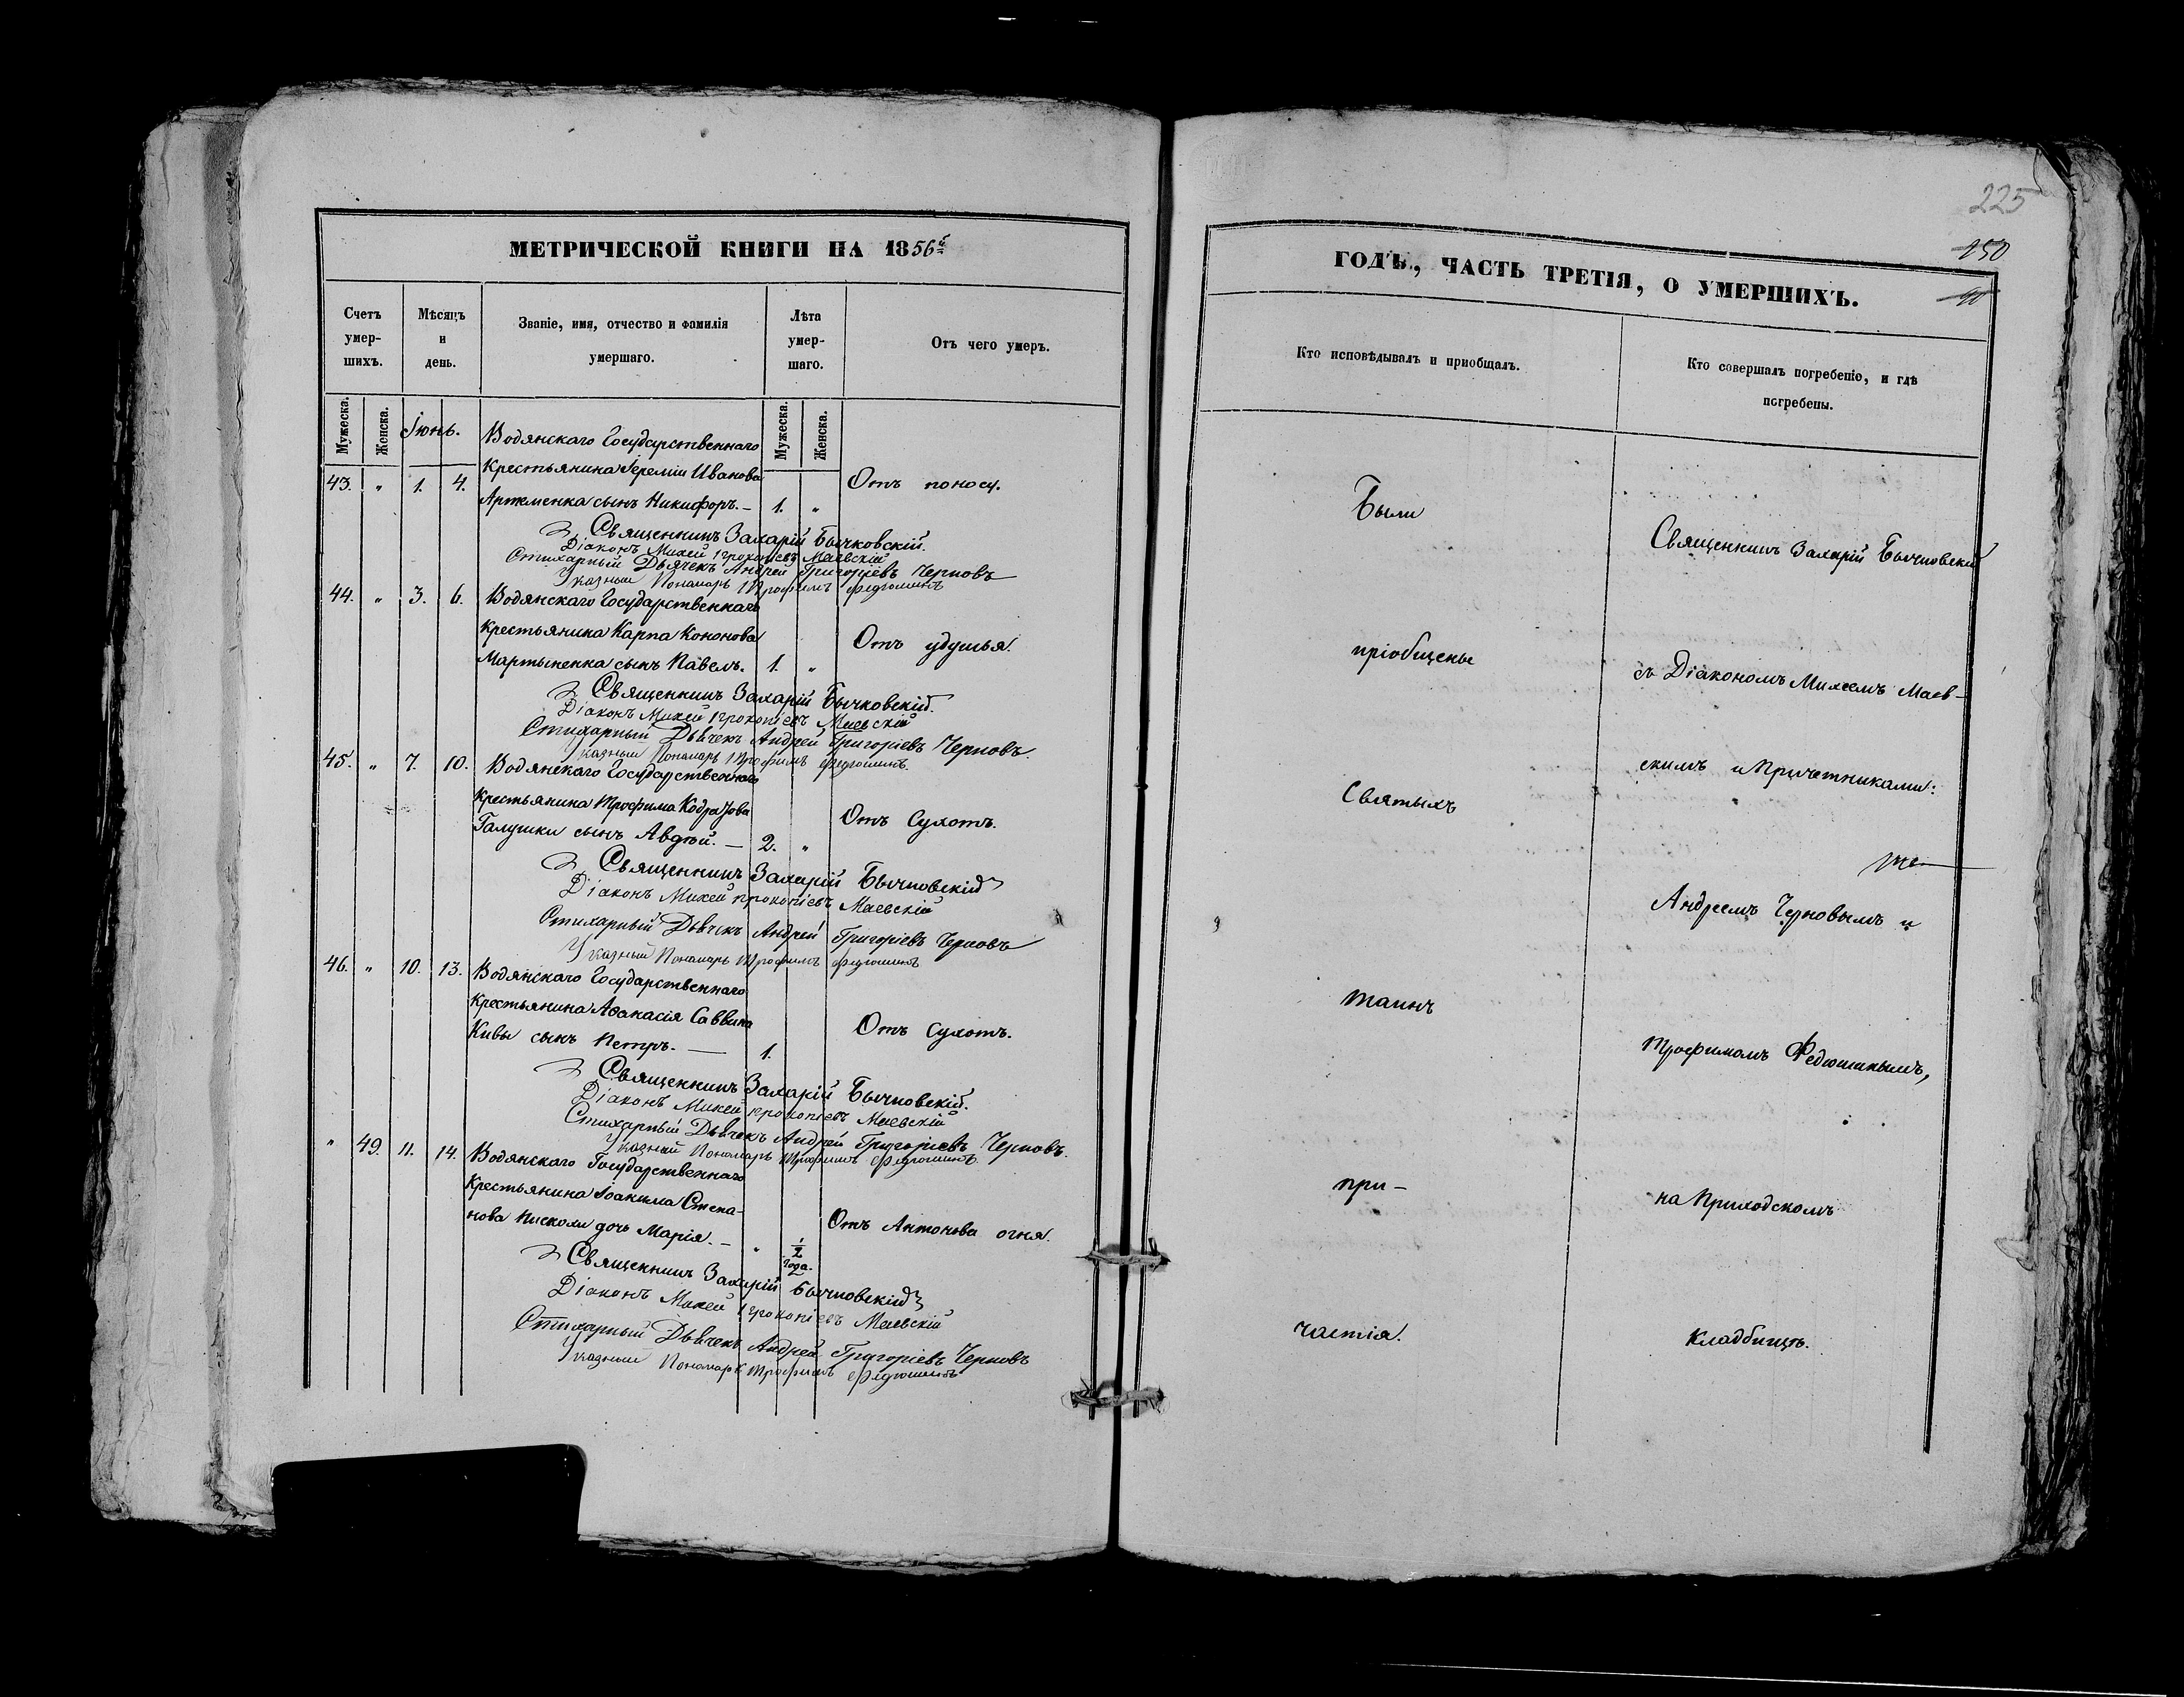 225
150
90
МЕТРИЧЕСКОЙ КНИГИ НА 1856й
Счетъ умер- шихъ.
Мѣсяцъ и день.
Званіе, имя, отчество и фамилія умершаго.
Лѣта умер- шаго.
Отъ чего умеръ.
Мужеска.
Женска.
Іюнь.
Мужеска.
Женска.
Водянскаго Государственнаго
43. " 1. 4. Крестьянина Іереміи Иванова Отъ поносу.
Артеменка сынъ Никифоръ. — 1. "
Священникъ Захарій Бычковскій.
Діаконъ Михей Прокопіевъ Маевскій
Стихарный Дьячекъ Андрей Григоріевъ Черновъ
Указный Пономарь Трофимъ Федюшинъ
44. " 3. 6. Водянскаго Государственнаго
Крестьянина Карпа Кононова Отъ удушья.
Мартыненка сынъ Павелъ. 1. "
Священникъ Захарій Бычковскій.
Діаконъ Михей Прокопіевъ Маевскій
Стихарный Дьячекъ Андрей Григоріевъ Черновъ.
Указный Пономарь Трофимъ Федюшинъ.
45. " 7. 10. Водянскаго Государственнаго
Крестьянина Трофима Отъ Сухотъ.
Галушки сынъ Авдѣй. — 2. "
Священникъ Захарій Бычковскій
Діаконъ Михей Прокопіевъ Маевскій
Стихарный Дьячекъ Андрей Григоріевъ Черновъ
Указный Пономарь Трофимъ Федюшинъ
46. " 10. 13. Водянскаго Государственнаго
Крестьянина Аѳанасія Саввина Отъ Сухотъ.
Кивы сынъ Петръ. — 1.
Священникъ Захарій Бычковскій.
Діаконъ Михей Прокопіевъ Маевскій
Стихарный Дьячекъ Андрей Григоріевъ Черновъ.
Указный Пономарь Трофимъ Федюшинъ.
" 49. 11. 14. Водянскаго Государственнаго
Крестьянина Іоакима Степа-
нова дочь Марія. — " 1/2 года. Отъ Антонова огня.
Священникъ Захарій Бычковскій
Діаконъ Михей Прокопіевъ Маевскій
Стихарный Дьячекъ Андрей Григоріевъ Черновъ
Указный Пономарь Трофимъ Федюшинъ
ГОДЪ, ЧАСТЬ ТРЕТІЯ, О УМЕРШИХЪ.
Кто исповѣдывалъ и приобщалъ.
Кто совершалъ погребеніе, и гдѣ погребены.
Были
пріобщены
Святыхъ
таинъ
при-
частія.
Священникъ Захарій Бычковскій
съ Діакономъ Михеемъ Маев-
скимъ и Причетниками:
Андреемъ Черновымъ и
Трофимомъ Федюшинымъ,
на Приходскомъ
Кладбищѣ.